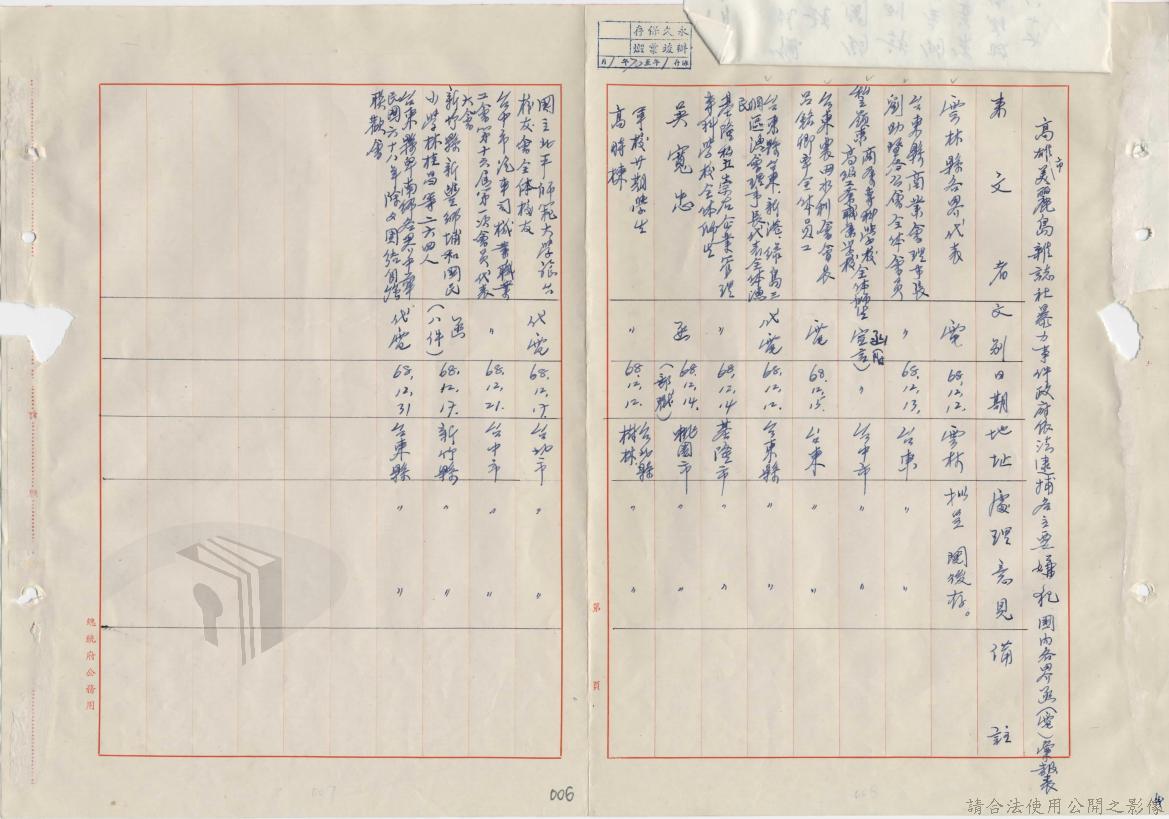 高雄市美麗島雜誌社暴力事件政府依法逮捕各主要嫌犯國內各界函(電)彙報表
來文者
文別
日期
地址
處理意見
備註
雲林縣各界代表
電
68.12.12.
雲林
擬呈 閱後存。
台東縣商業會理事長
劉助暨各公會全体會員
〃
68.12.13.
台東
〃
〃
嶺東商業專科學校全体師生
高級工商職業學校
宣言
〃
台中市
〃
〃
台東農田水利會會長
呂銘卿率全体員工
電
68.12.15.
台東
〃
〃
台東縣台東、新港、綠島三
個區漁會理事長代表全体漁
民
代電
68.12.12.
台東縣
〃
〃
基隆私立崇右企業管理
專科學校全体師生
〃
68.12.14
基隆市
〃
〃
吳寬忠
函
68.12.14.
(郵戳)
桃園市
〃
〃
軍校廿期學生
高時棟
〃
68.12.12.
台北縣
樹林
〃
〃
國立北平師範大學旅台
校友會全体校友
代電
68.12.17.
台北市
〃
〃
台中市汽車司機業職業
工會第十六屆第一次會員代表
大會
〃
68.12.21.
台中市
〃
〃
新竹縣新豐鄉埔和國民
小學林桂昌等二六四人
函
(八件)
68.12.17.
新竹縣
〃
〃
民國六十八年除夕團結自強
聯歡會
代電
68.12.31
台東縣
〃
〃
永久保存
辦竣案檔
第 頁
總統府公務用
006
請合法使用公開之影像